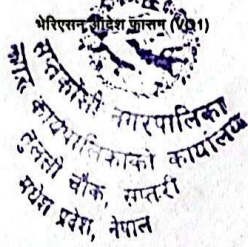 भेरिएसन आदेश फारम (V01)
सप्तकोशी नगरपालिका
नगर कार्यपालिकाको कार्यालय
चौक, सप्तरी
मधेश प्रदेश, नेपाल